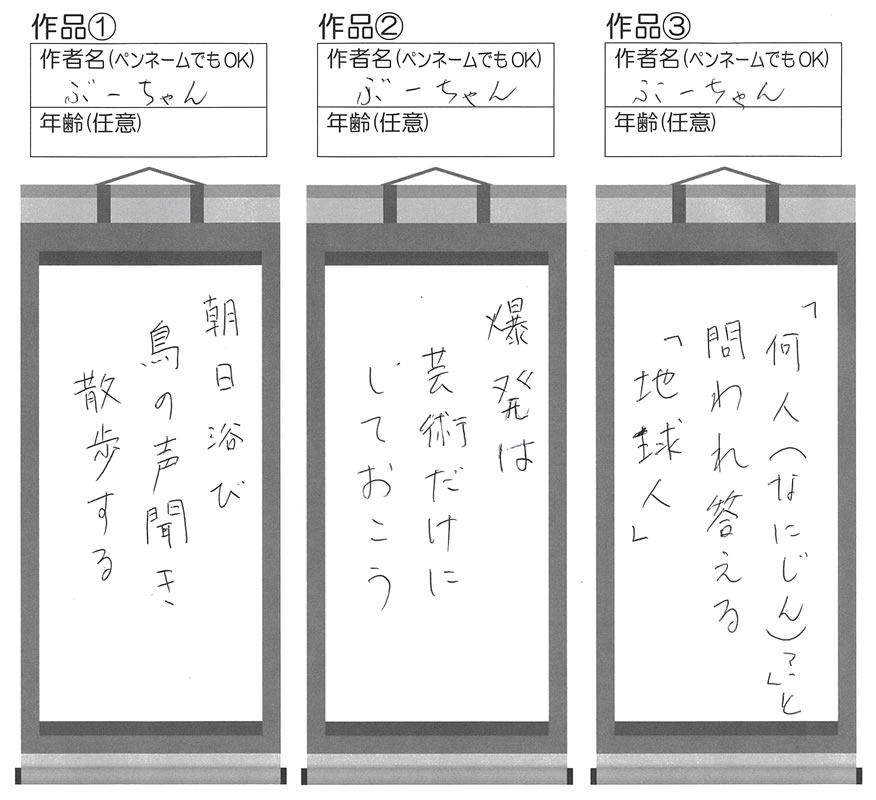 作品①
作者名(ペンネームでもOK)
ぶーちゃん
年齢(任意)
朝日浴び
鳥の声聞き
散歩する
作品②
作者名(ペンネームでもOK)
ぶーちゃん
年齢(任意)
爆発は
芸術だけに
しておこう
作品③
作者名(ペンネームでもOK)
ぶーちゃん
年齢(任意)
「何人(なにじん)?」と
問われ答える
「地球人」